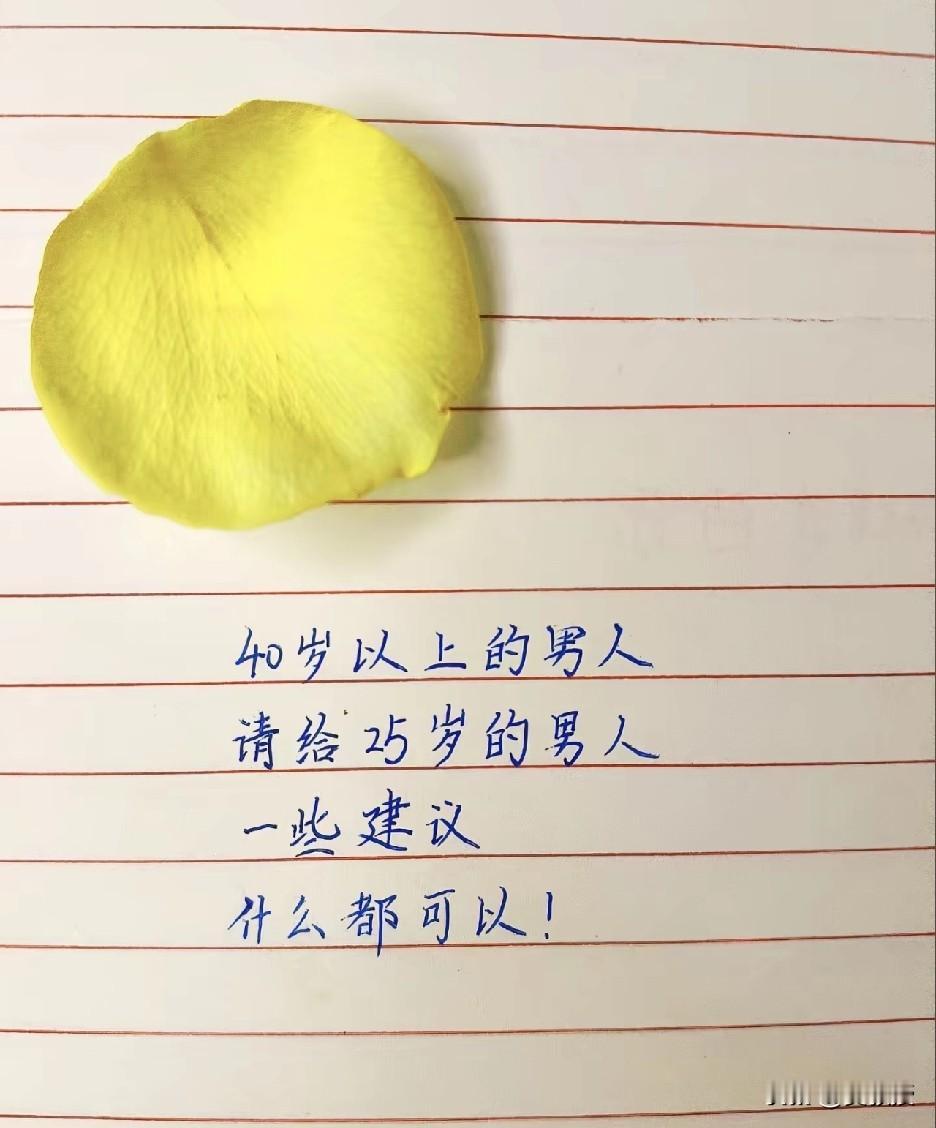 40岁以上的男人
请给25岁的男人
一些建议
什么都可以！